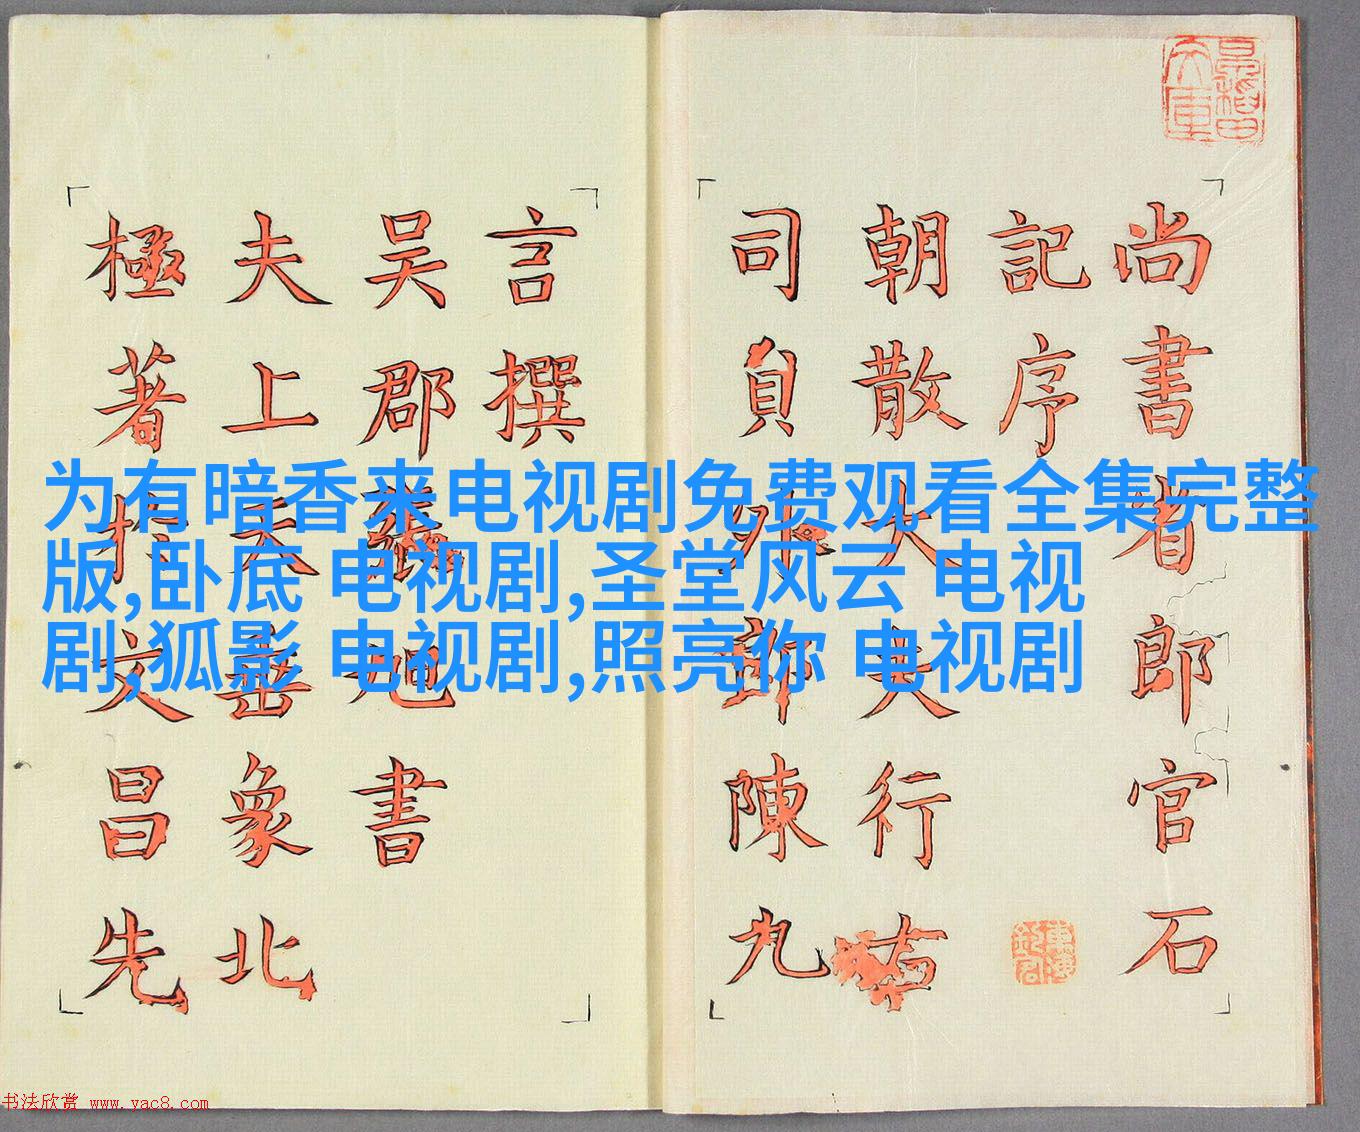 为有暗香来电视剧免费观看全集完整
版,卧底 电视剧,圣堂风云 电视
剧,狐影 电视剧,照亮你 电视剧
尚書省郎官石
記序
朝散大夫行右
司員外郎陳九
言撰
吴郡張旭書
夫上天垂象北
極著於文昌先
书法欣赏 www.yac8.com